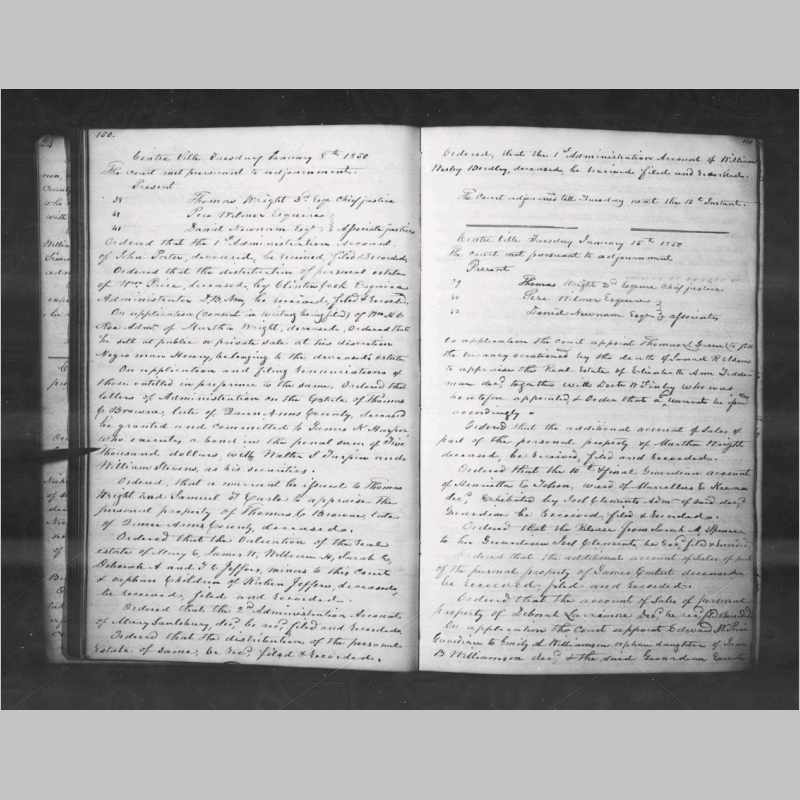 100.
Centre Ville Tuesday January 8th 1850
The court met pursuant to adjournment.
Present
Thomas Wright 3d Esqr Chief justice
Pere Wilmer Esquire
Daniel Newnam Esqr } Associate justices
Ordered that the 1st Administration Account
of John, deceased, be received, filed & Recorded
Ordered that the distribution of personal estate
of Wm Price, deceased, by Clinton Cook Esquire
Administrator D.B.N. be received, filed & Recorded.
On application (consent in writing being filed) of Wm H.
Admr of Martha Wright, deceased, Ordered that
he sell at public or private sale at his discretion
Negro man Henry, belonging to the deceaseds estate
On application and filing renunciations of
those entitled in preference to the same, Ordered that
letters of Administration on the Estate of Thomas
C. Browne, late of Queen Anns County, deceased
be granted and committed to James N.
who executes a bond in the penal sum of Five
thousand dollars, with Walter J. Turpin and
William Stevens, as his securities.
Ordered, that a warrant be issued to Thomas
Wright and Samuel T. Earle to appraise the
personal property of Thomas C Browne late
of Queen Anns County, deceased.
Ordered that the Valuation of the real
estate of Mary E, James W, William H, Sarah E,
Deborah A and T. C Jeffers, minors to this Court
& orphan Children of Jeffers, deceased,
be received, filed and recorded.
Ordered that the 2d Administration Account
of Mary Saulsbury, decd be recd filed and Recorded
Ordered that the distribution of the personal
Estate of same, be Recd filed & Recorded.
Ordered, that the 1st Administration Account of William
Wesley deceased, be received filed and Recorded.
The Court adjourned till Tuesday next the 15th Instant.
Centre Ville Tuesday January 15th 1850
The court met pursuant to adjournment
Present
Thomas Wright 3d Esquire Chief justice
Pere Wilmer Esquire
Daniel Newnam Esqr } associates
On application the court appoint Thomas to fill
the vacancy occasioned by the death of
to appraise the Real Estate of Elizabeth Ann
decd together with who was
heretofore appointed, & Order that a warrant be issued
accordingly.
Ordered that the additional account of Sales of
part of the personal property of Martha Wright
deceased, be received, filed and recorded.
Ordered that the 10th & final Guardian account
of Henrietta E. ward of Marcellus
decd exhibited by Joel Clements Admr of said decd
Guardian be Received filed & Recorded.
Ordered that the Release from Sarah M.
to her Guardian Joel Clements, be Recd filed &
Ordered that the additional account of Sales of part
of the personal property of James deceased
be received, filed and recorded.
Ordered that the account of Sales of personal
property of Deborah decd be recd filed & Recorded
On application the Court appoint Edward
Guardian to Emily A Williamson orphan daughter of
B Williamson decd & the said Guardian